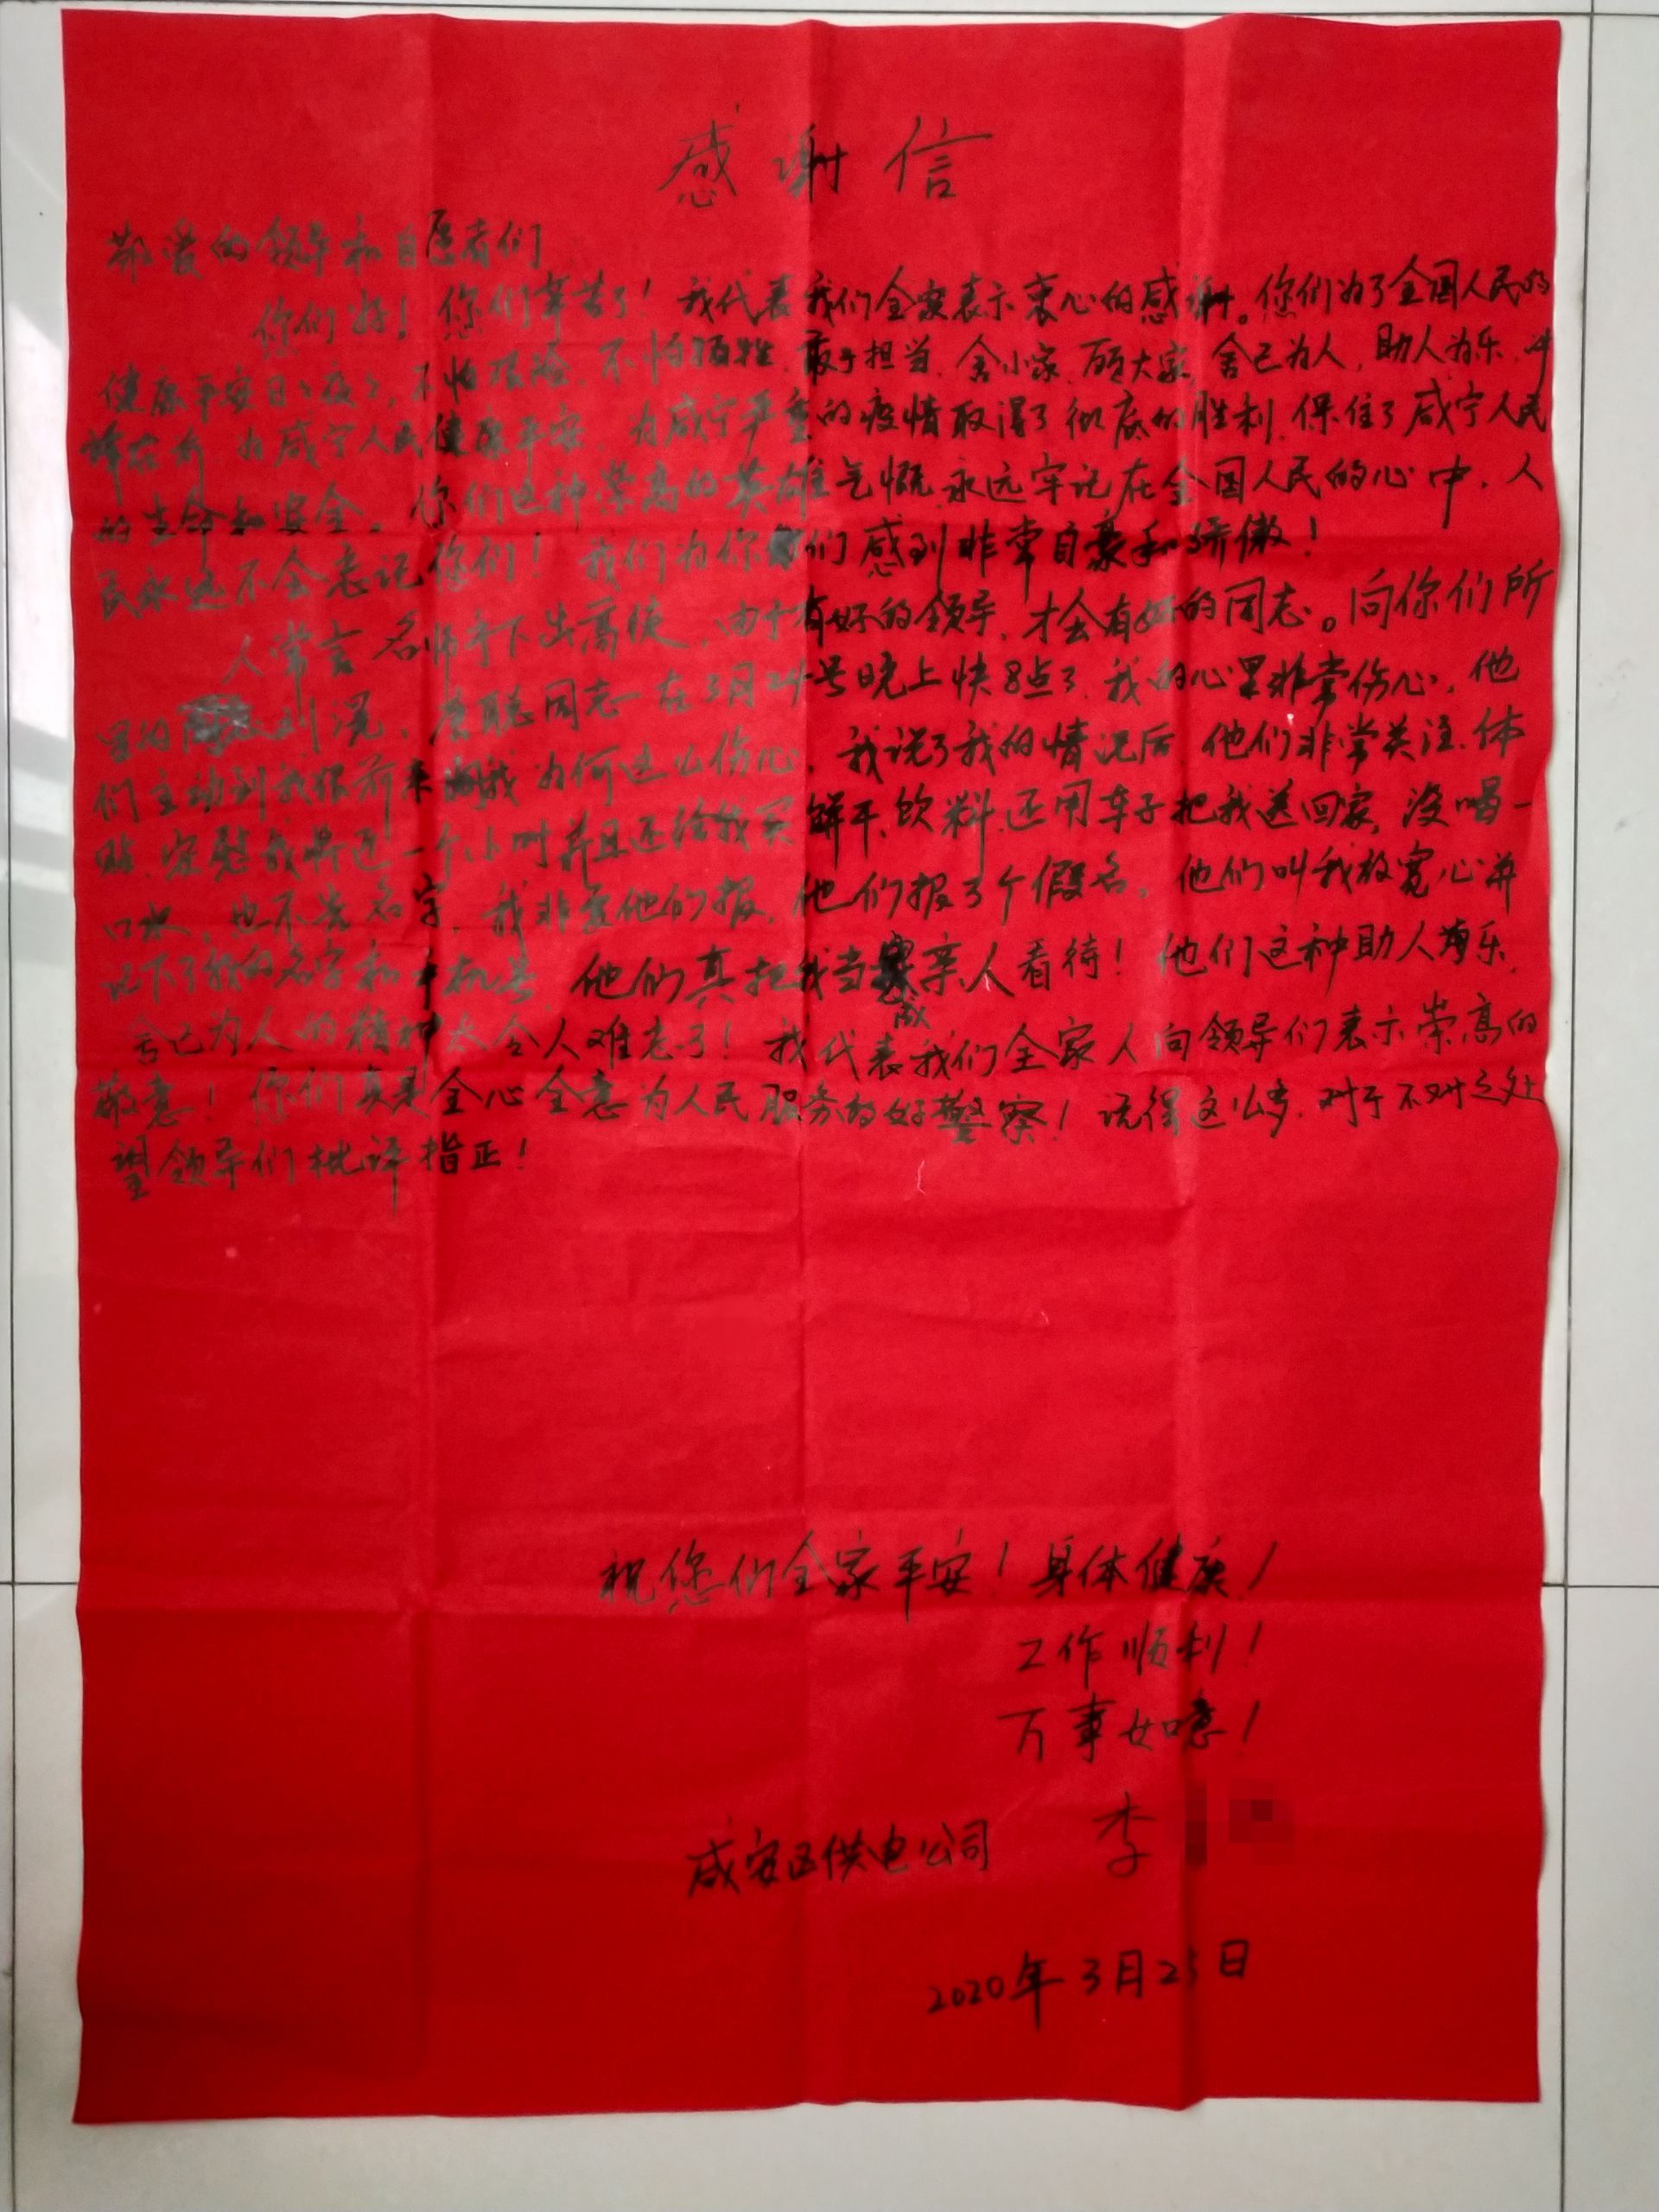 感谢信
敬爱的领导和自愿者们
您们好！您们辛苦了！我代表我们全家表示衷心的感谢。您们为了全国人民的
健康平安日日夜夜，不怕艰险、不怕牺牲、敢于担当、舍小家、顾大家、舍己为人，助人为乐、冲
锋在前，为咸宁人民健康平安，为咸宁严重的疫情取得了彻底的胜利，保住了咸宁人民
的生命和安全。你们这种崇高的英雄气慨永远牢记在全国人民的心中，人
民永远不会忘记你们！我们为你们感到非常自豪和骄傲！
人常言名师手下出高徒，由于有好的领导，才会有好的同志。向你们所
里的刘滉、聪同志在3月24号晚上快8点了，我的心里非常伤心，他
们主动到我跟前来询我为何这么伤心，我说了我的情况后他们非常关注、体
贴、安慰我将近一个小时并且还给我买饼干、饮料，还用车子把我送回家，没喝一
口水，也不告名字，我非要他们报，他们报了个假名。他们叫我放宽心并
记下了我的名字和手机号，他们真把我当成亲人看待！他们这种助人为乐、
舍己为人的精神太令人难忘了！我代表我们全家人向领导们表示崇高的
敬意！你们真是全心全意为人民服务的好警察！说得这么多，对于不对之处
望领导们批评指正！
祝您们全家平安！身体健康！
工作顺利！
万事如意！
咸安区供电公司 李
2020年3月25日